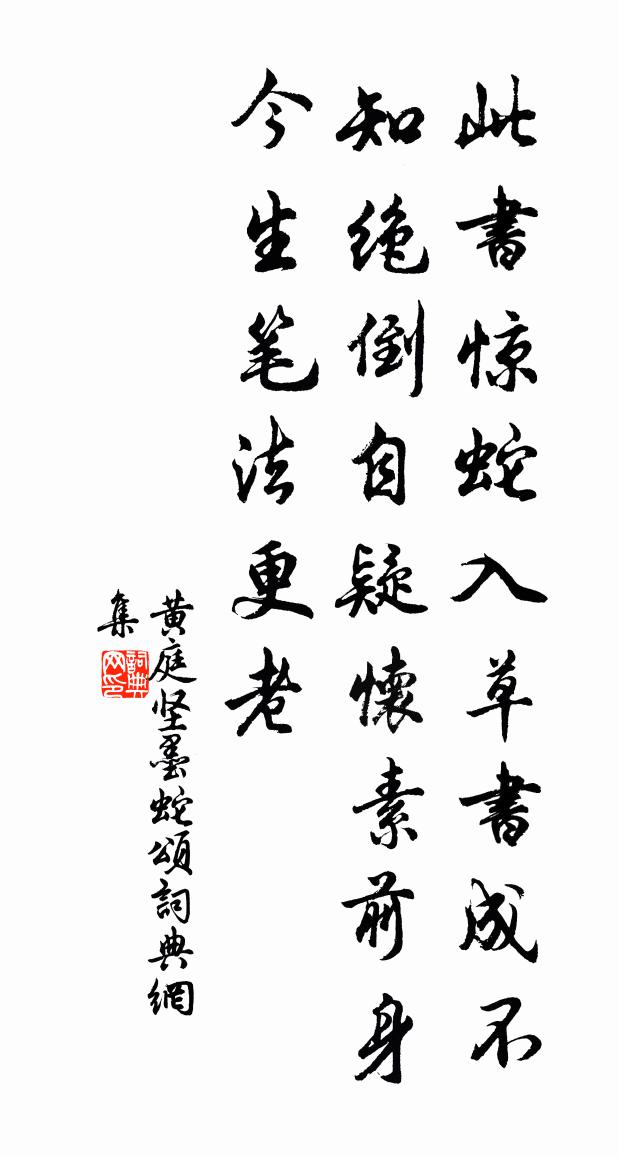 此書惊蛇入草書成不
知绝倒自疑懷素前身
今生笔法更老
黄庭坚墨蛇頌詞典網
集
詞典
网印